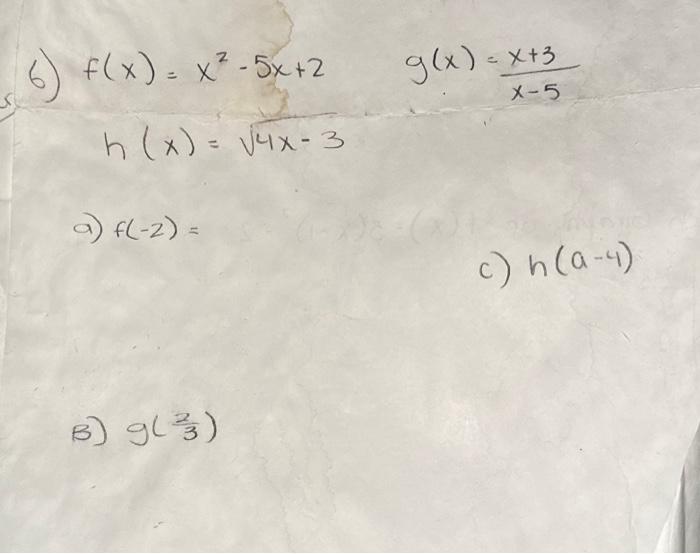 6) f(x) = x² - 5x+2 g(x) = x+3 / x-5
h(x) = √4x-3
a) f(-2) =
c) h(a-4)
B) g(2/3)